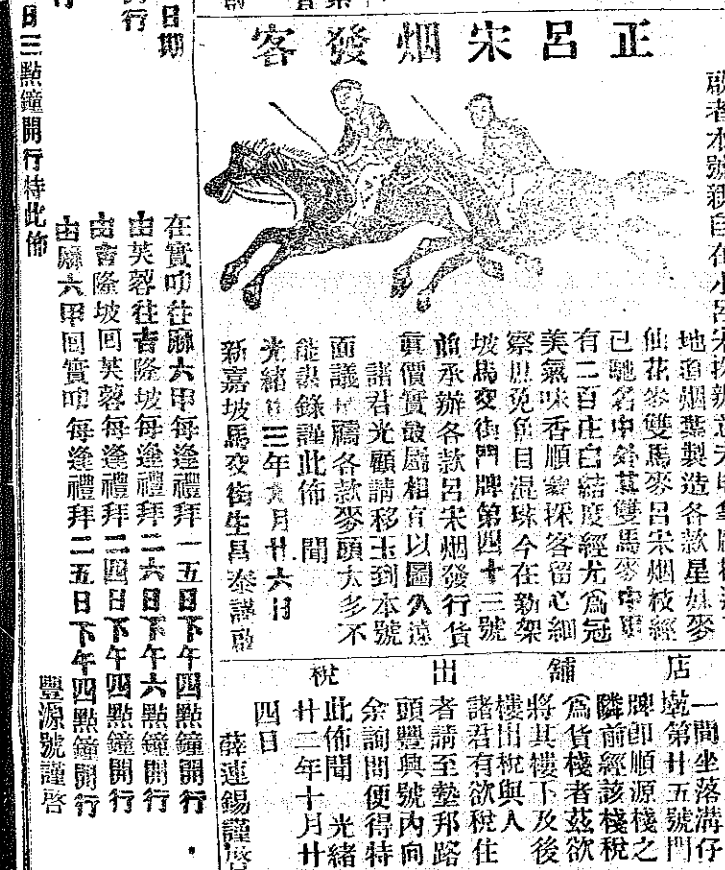 正呂宋烟發客
啟者本號親自在小呂宋採辦
地道烟葉製造各款星妹麥
仙花麥雙馬麥呂宋烟枝經
已馳名中外其雙馬麥中更
有二百庄白結度經尤為冠
美氣味香順蒙採客留心細
察庶免魚目混珠今在新架
坡馬交街門牌第四十三號
前承辦各款呂宋烟發行貨
真價實敬屬相宜以圖久遠
諸君光顧請移玉到本號
面議 各款麥頭太多不
能盡錄謹此佈 聞
光緒 三年 月廿六日
新嘉坡馬交街生昌泰謹啟
店舖出梲
一間坐落溝仔
墘第廿五號門
牌即順源棧之
隣前經該棧稅
為貨棧者茲欲
將其樓下及後
樓出梲與人
諸君有欲稅住
者請至墊邦路
頭豐興號內向
余詢問便得特
此佈聞 光緒
廿二年十月廿
四日
薛連錫謹啓
日期
行
在實叻往麻六甲每逢禮拜一五日下午四點鐘開行
由芙蓉往吉隆坡每逢禮拜二六日下午六點鐘開行
由吉隆坡回芙蓉每逢禮拜二四日下午四點鐘開行
由麻六甲回實叻每逢禮拜二五日下午四點鐘開行
豐源號謹啓
日三點鐘開行特此佈